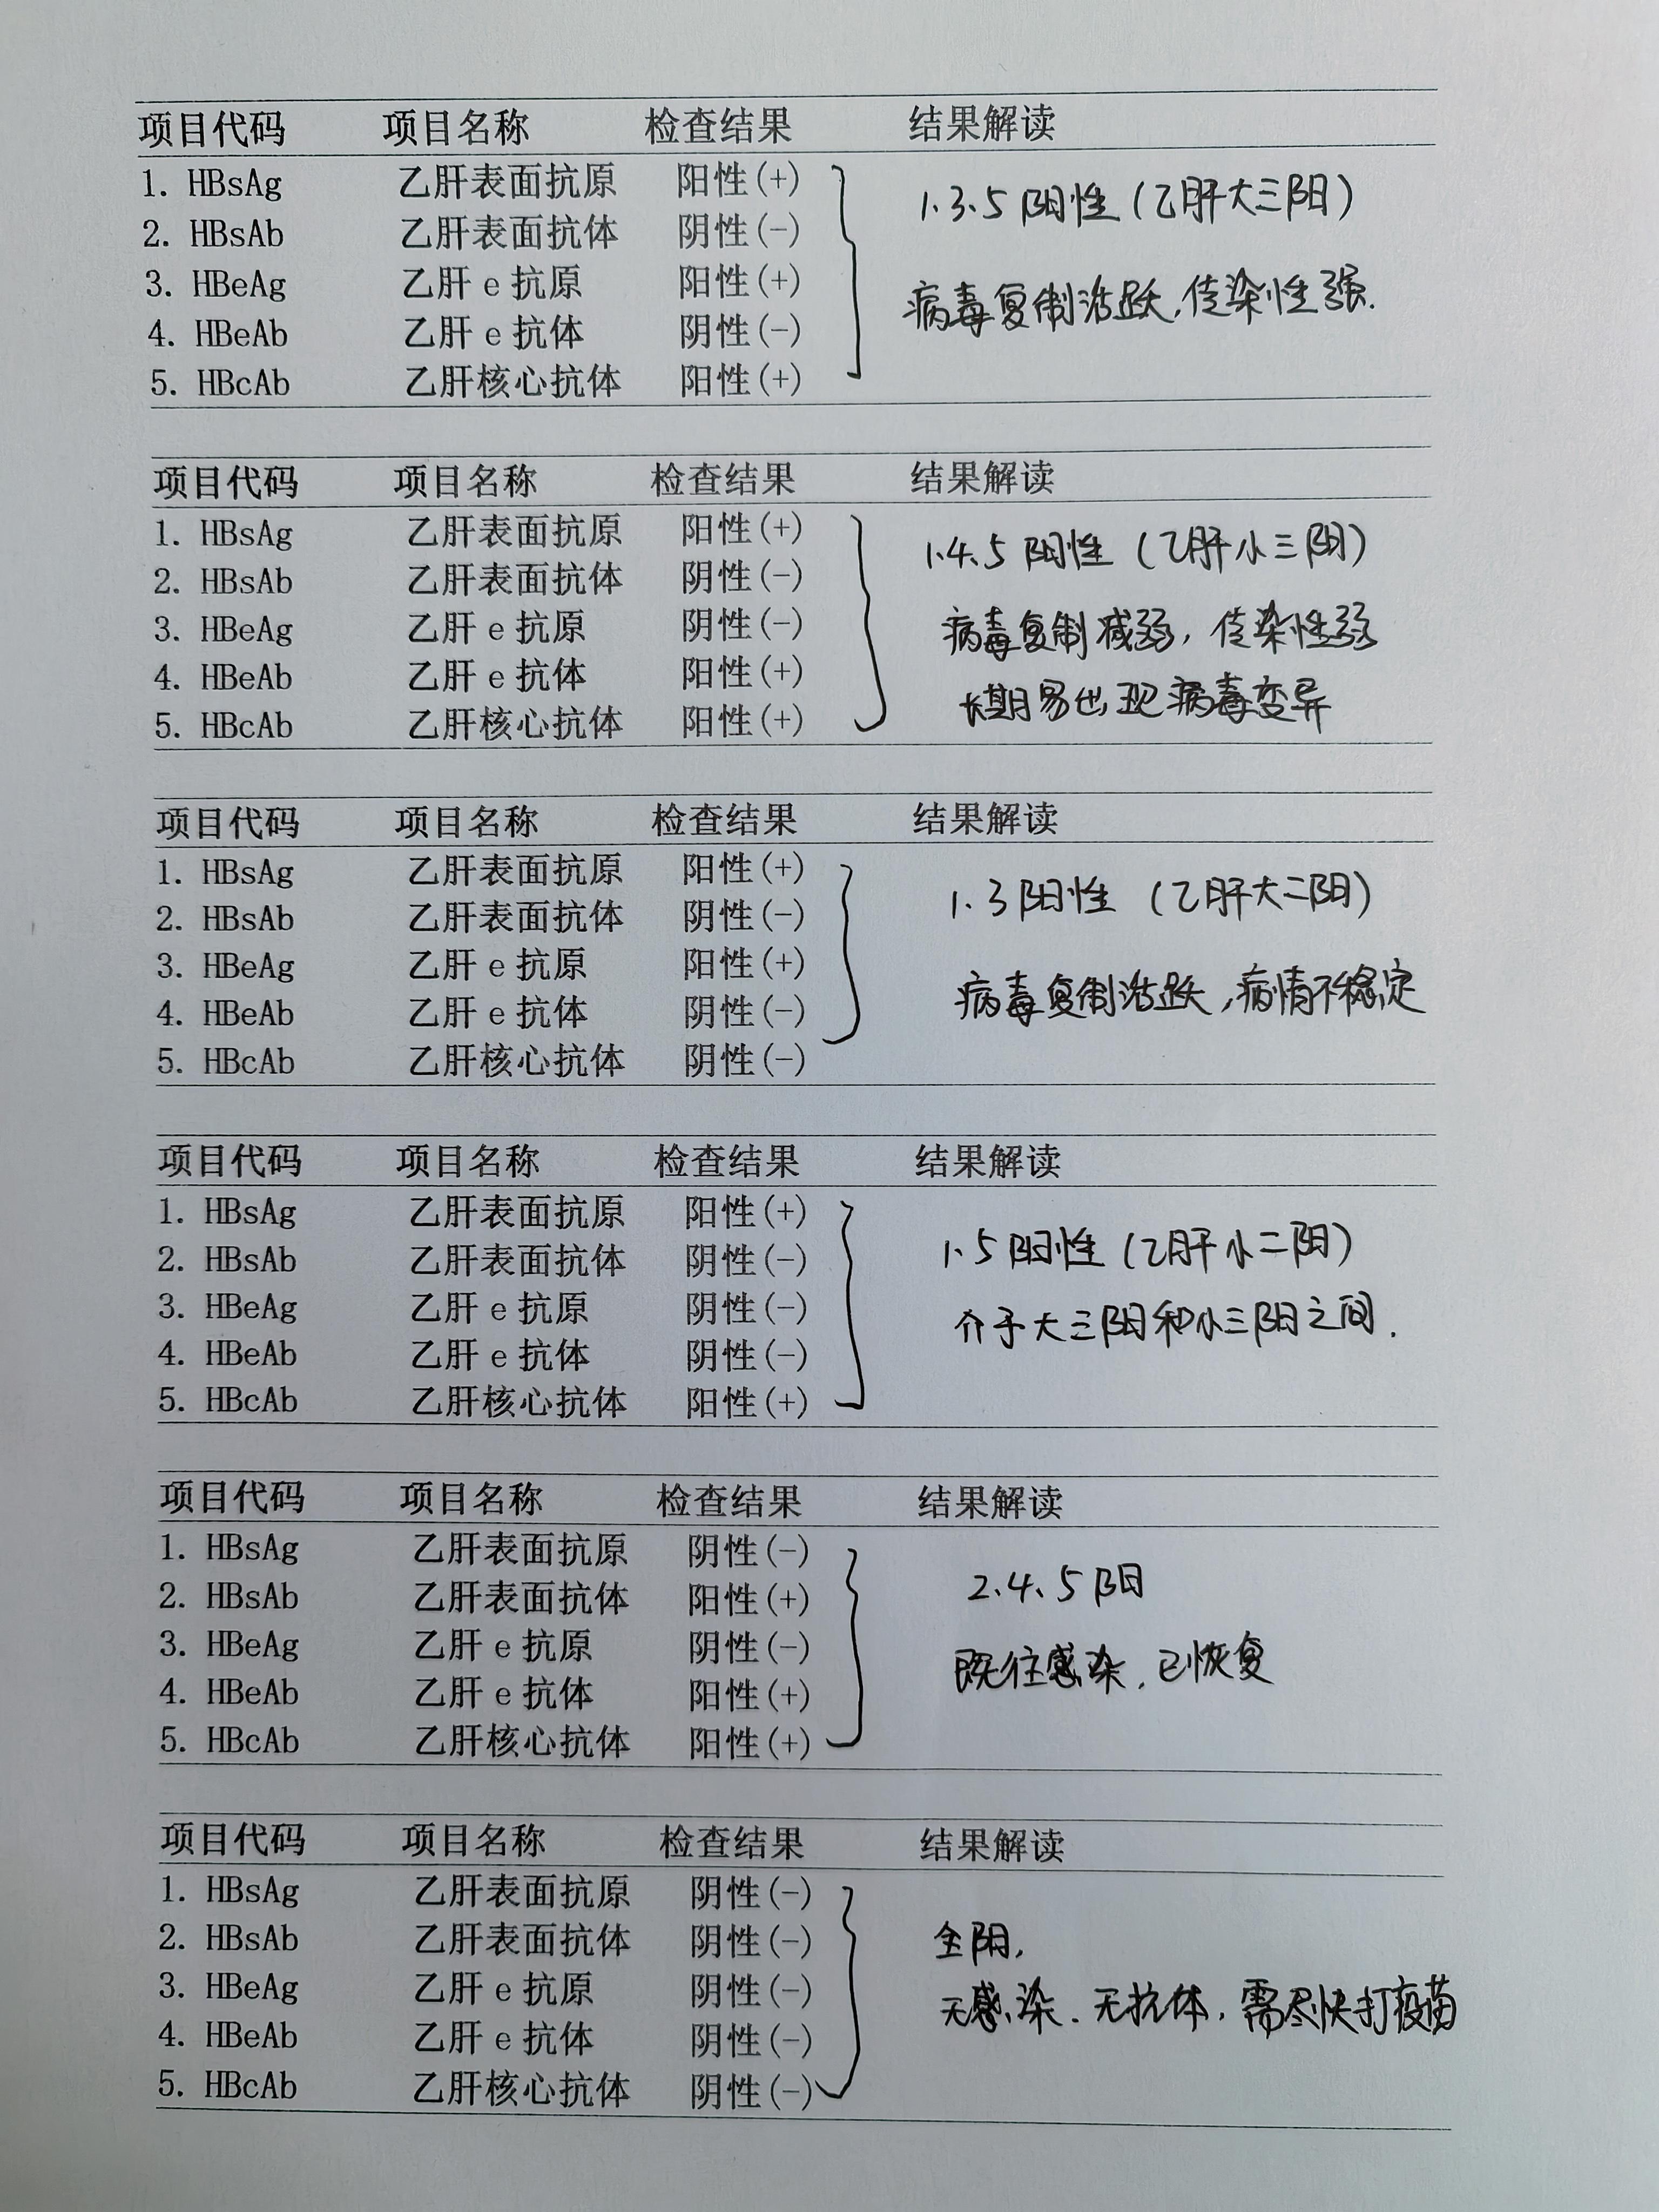 项目代码 项目名称 检查结果 结果解读
1. HBsAg 乙肝表面抗原 阳性(+) 1.3.5阳性(乙肝大三阳)
2. HBsAb 乙肝表面抗体 阴性(-)
3. HBeAg 乙肝 e 抗原 阳性(+) 病毒复制活跃,传染性强.
4. HBeAb 乙肝 e 抗体 阴性(-)
5. HBcAb 乙肝核心抗体 阳性(+)
项目代码 项目名称 检查结果 结果解读
1. HBsAg 乙肝表面抗原 阳性(+) 1.4.5阳性(乙肝小三阳)
2. HBsAb 乙肝表面抗体 阴性(-)
3. HBeAg 乙肝 e 抗原 阴性(-) 病毒复制减弱,传染性弱
4. HBeAb 乙肝 e 抗体 阳性(+) 长期易出现病毒变异
5. HBcAb 乙肝核心抗体 阳性(+)
项目代码 项目名称 检查结果 结果解读
1. HBsAg 乙肝表面抗原 阳性(+) 1.3阳性(乙肝大二阳)
2. HBsAb 乙肝表面抗体 阴性(-)
3. HBeAg 乙肝 e 抗原 阳性(+) 病毒复制活跃,病情不稳定
4. HBeAb 乙肝 e 抗体 阴性(-)
5. HBcAb 乙肝核心抗体 阴性(-)
项目代码 项目名称 检查结果 结果解读
1. HBsAg 乙肝表面抗原 阳性(+) 1.5阳性(乙肝小二阳)
2. HBsAb 乙肝表面抗体 阴性(-)
3. HBeAg 乙肝 e 抗原 阴性(-) 介于大三阳和小三阳之间.
4. HBeAb 乙肝 e 抗体 阴性(-)
5. HBcAb 乙肝核心抗体 阳性(+)
项目代码 项目名称 检查结果 结果解读
1. HBsAg 乙肝表面抗原 阴性(-) 2.4.5阳
2. HBsAb 乙肝表面抗体 阳性(+)
3. HBeAg 乙肝 e 抗原 阴性(-) 既往感染,已恢复
4. HBeAb 乙肝 e 抗体 阳性(+)
5. HBcAb 乙肝核心抗体 阳性(+)
项目代码 项目名称 检查结果 结果解读
1. HBsAg 乙肝表面抗原 阴性(-)
2. HBsAb 乙肝表面抗体 阴性(-) 全阴,
3. HBeAg 乙肝 e 抗原 阴性(-) 无感染.无抗体,需尽快打疫苗
4. HBeAb 乙肝 e 抗体 阴性(-)
5. HBcAb 乙肝核心抗体 阴性(-)